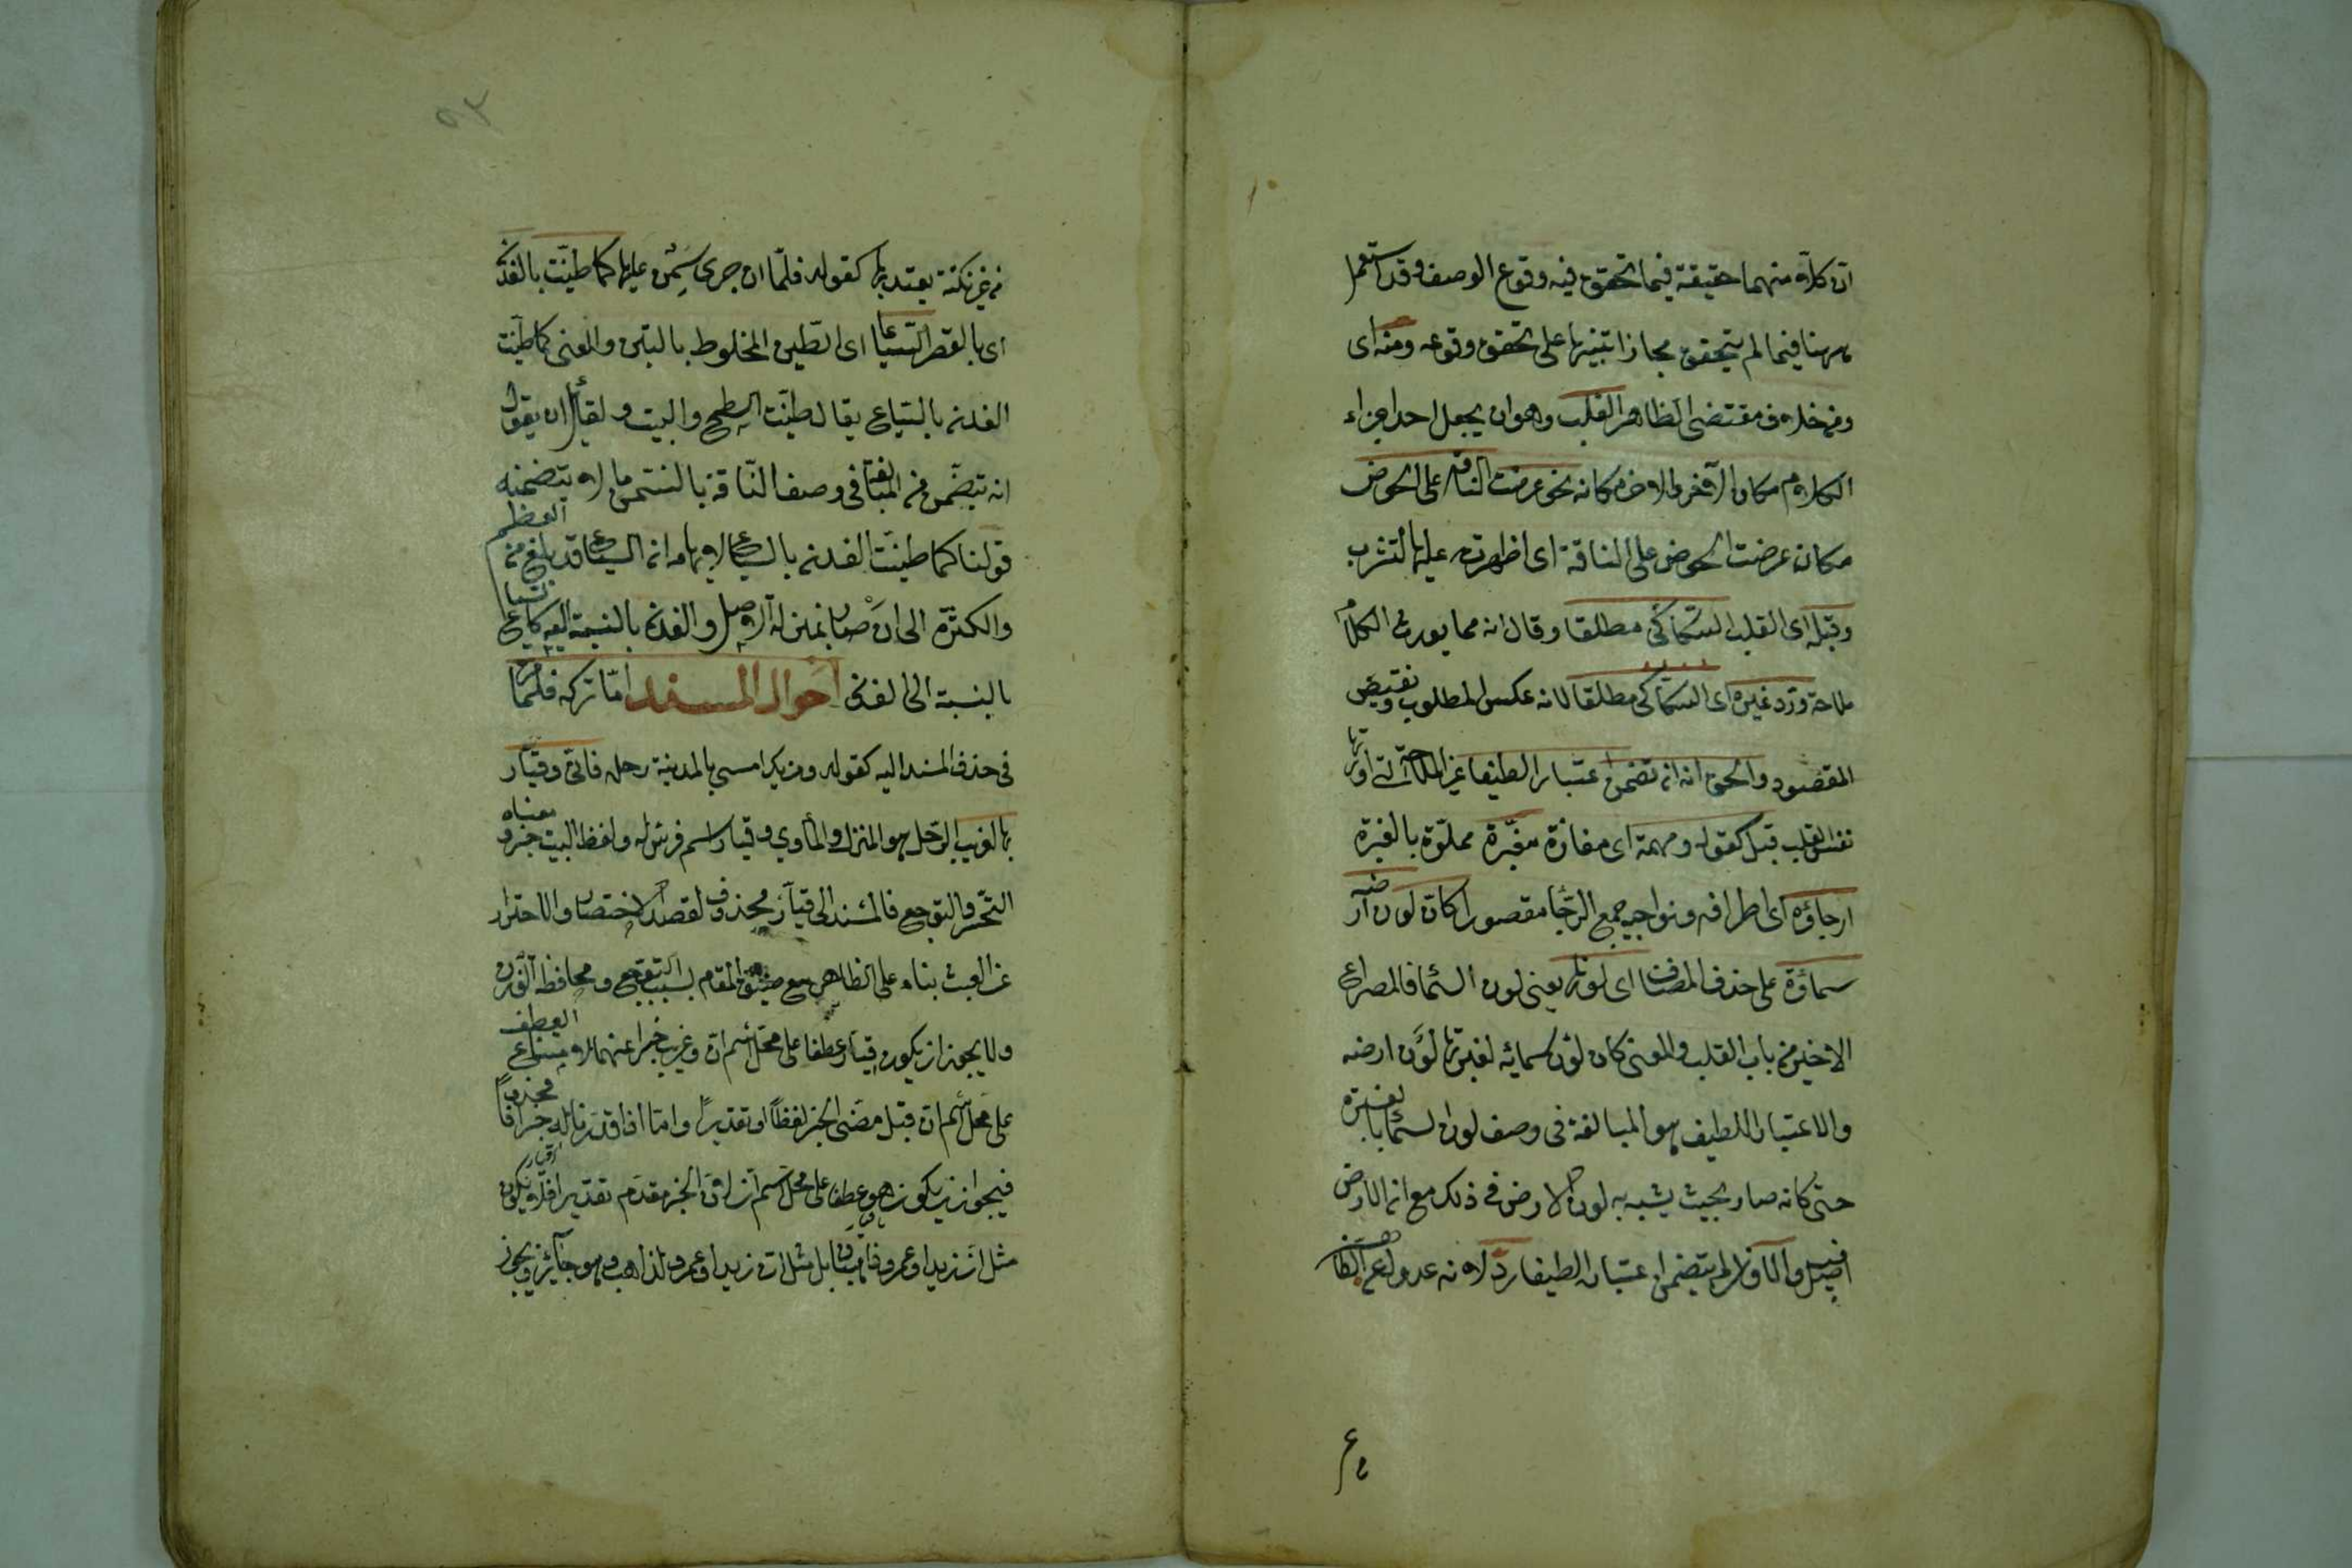 ان كلا منهما حقيقة فيما تحقق فيه وقوع الوصف وقد استعمل
ههنا فيما لم يتحقق مجازا تنبيها على تحقق وقوعه ومنه اى
ومن خلاف مقتضى الظاهر القلب وهو ان يجعل احد اجزاء
الكلام مكان الآخر والاخر مكانه نحو عرضت الناقة على الحوض
مكان عرضت الحوض على الناقة اى اظهرته عليها لتشرب
وقبله اى القلب السكاكى مطلقا وقال انه مما يورث الكلام
ملاحة وردّ غيره اى السكاكى مطلقا لانه عكس المطلوب ونقيض
المقصود والحق انه ان تضمن اعتبارا لطيفا غير الملاحة التى اورثها
نفس القلب قبل كقوله ومهمة اى مفازة مغبّرة مملوّة بالغبرة
ارجاؤه اى اطرافه ونواحيه جمع الرّجا مقصورا كان لون ارضه
سماؤه على حذف المضاف اى لونها يعنى لون السّماء فالمصراع
الاخير من باب القلب والمعنى كان لون سمائه لغبرتها لون ارضه
والاعتبار اللطيف هو المبالغة فى وصف لون السّماء بالغبرة
حتى كانه صار بحيث يشبه به لون الارض فى ذلك مع ان الارض
اصل فيه والّا اى وان لم يتضمن اعتبارا لطيفا ردّ لانه عدول عن الظاهر
من غير نكتة يعتد بها كقوله فلمّا ان جرى سِمَن عليها كما طيّنت بالفدن
اى بالقصر السّياعا اى الطّين المخلوط بالتبن والمعنى كما طيّنت
الفدن بالسّياع يقال طيّنت السطح والبيت ولقائل ان يقول
انه يتضمّن من المبالغة فى وصف النّاقة بالسّمن ما لا يتضمنه
قولنا كما طيّنت الفدن بالسياع لايهامه ان السياع قد بلغ من العظم
والكثرة الى ان صار بمنزلة الاصل والفدن بالنسبة اليه كالسياع
بالنسبة الى الفدن احوال المسند امّا تركه فلما مرّ
فى حذف المسند اليه كقوله ومن يك امسى بالمدينة رحله فانّى وقيّار
بها لغريب الرّحل هو المنزل والمأوى وقيار اسم فرس له ولفظ البيت خبر ومعناه
التحسّر والتوجع فالمسند الى قيّار محذوف لقصد الاختصار والاحتراز
عن العبث بناء على الظاهر مع ضيق المقام بسبب التوجع ومحافظة الوزن
ولا يجوز ان يكون قيار عطفا على محل اسم ان وغريب خبرا عنهما لامتناع العطف
على محل اسم ان قبل مضىّ الخبر لفظا او تقديرا وامّا اذا قدّرنا له خبرا محذوفا
فيجوز ان يكون هو عطفا على محل اسم ان لان الخبر مقدّم تقديرا فلا يكون
مثل انّ زيدا وعمرو ذاهبان بل مثل ان زيدا وعمرو لذاهب وهو جائز ويجوز